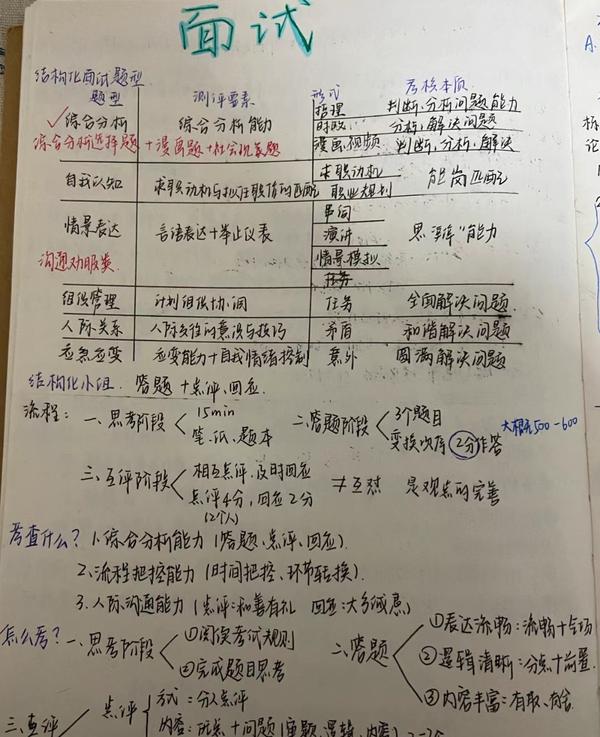 面试
结构化面试题型
题型 测评要素 形式 考核本质
✓综合分析 综合分析能力 哲理 判断、分析问题能力
时政 分析、解决问题
综合分析选择题+漫画题+社会现象题 漫画、视频 判断、分析、解决
自我认知 求职动机与拟任职位的匹配 求职动机 能岗匹配
职业规划
情景表达 言语表达+举止仪表 串词 思绎"能力
演讲
沟通劝服类 情景模拟
任务
组织管理 计划组织协调 任务 全面解决问题
人际关系 人际交往的意识与技巧 矛盾 和谐解决问题
应急应变 应变能力+自我情绪控制 意外 圆满解决问题
结构化小组. 答题+点评、回应
流程: 一、思考阶段 15min 二、答题阶段 3个题目 大概500-600
笔、纸、题本 变换次序 2分作答
三、互评阶段 相互点评、及时回应 ≠互怼 是观点的完善
点评4分,回应2分
(2个人)
考查什么? 1.综合分析能力(答题、点评、回应).
2.流程把控能力(时间把控、环节转换).
3.人际沟通能力(点评:和善有礼 回应:大方诚恳)
怎么考? 一、思考阶段 ①阅读考试规则 二、答题 ①表达流畅:流畅+气场
②完成题目思考 ②逻辑清晰:分点+前置.
③内容丰富:有取、有舍
三、互评 点评 方式:分人点评
内容:优点+问题(审题、逻辑、内容)